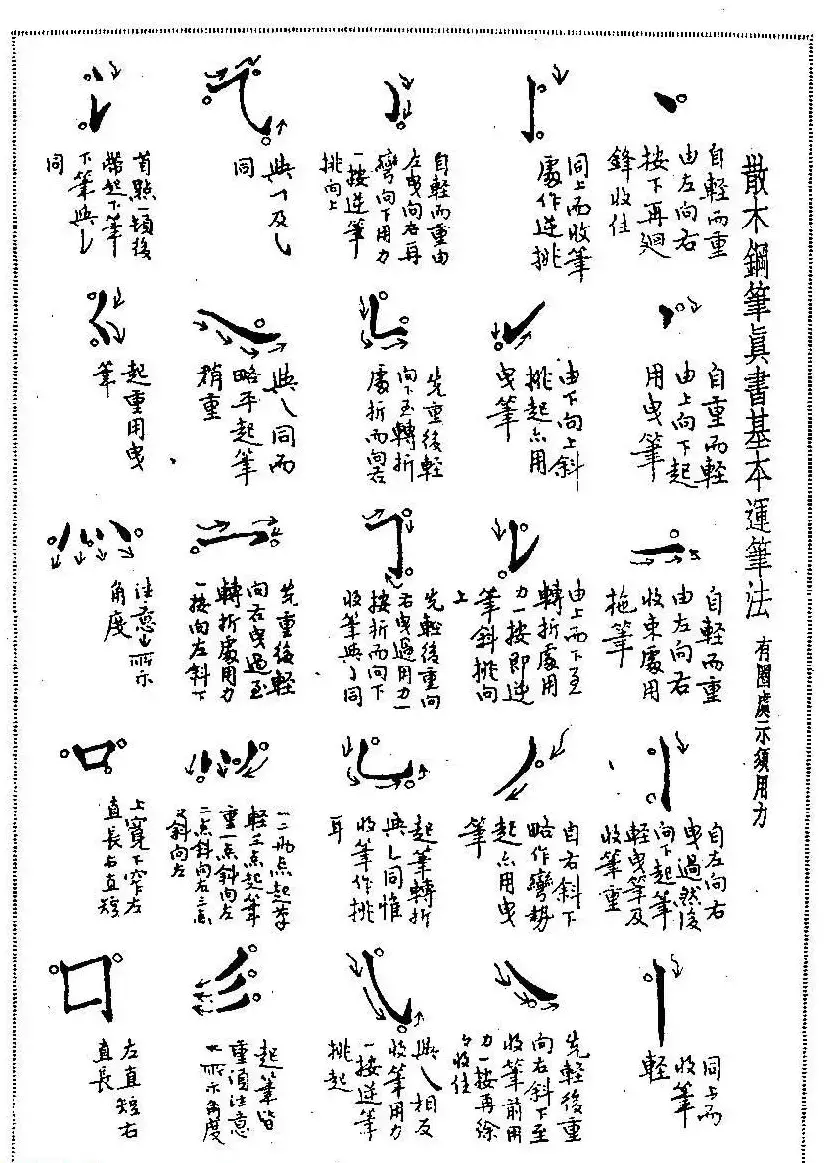 散木鋼筆真書基本運筆法
有圈處示須用力
自輕而重
由左向右
按下再廻
鋒收住
自重而輕
由上向下起
用曳筆
自輕而重
由左向右
收束處用
拖筆
自左向右
曳過然後
向下起筆
輕曳筆及
收筆重
同上而
收筆
輕
同上而收筆
處作逆挑
由下向上斜
挑起亦用
曳筆
由上而下至
轉折處用
力一按即逆
筆斜挑向
上
自右斜下
略作彎勢
起亦用曳
筆
先輕後重
向右斜下至
收筆前用
力一按再徐
々收住
自輕而重由
左曳向右再
彎向下用力
一按逆筆
挑向上
先重後輕
向下至轉折
處折而向右
先輕後重向
右曳過用力一
按折而向下
收筆與亅同
起筆轉折
與㇄同惟
收筆作挑
耳
與㇏相反
收筆用力
一按逆筆
挑起
與㇕及㇂
同
與㇏同而
略平起筆
稍重
先重後輕
向右曳過至
轉折處用力
一按向左斜下
一二兩点起筆
輕三点起筆
重一点斜向左
二点斜向右三点
又斜向左
起筆皆
重須注意
所示角度
首點一頓後
帶起下筆
下筆與㇙
同
起重用曳
筆
注意所示
角度
上寬下窄左
直長右直短
左直短右
直長